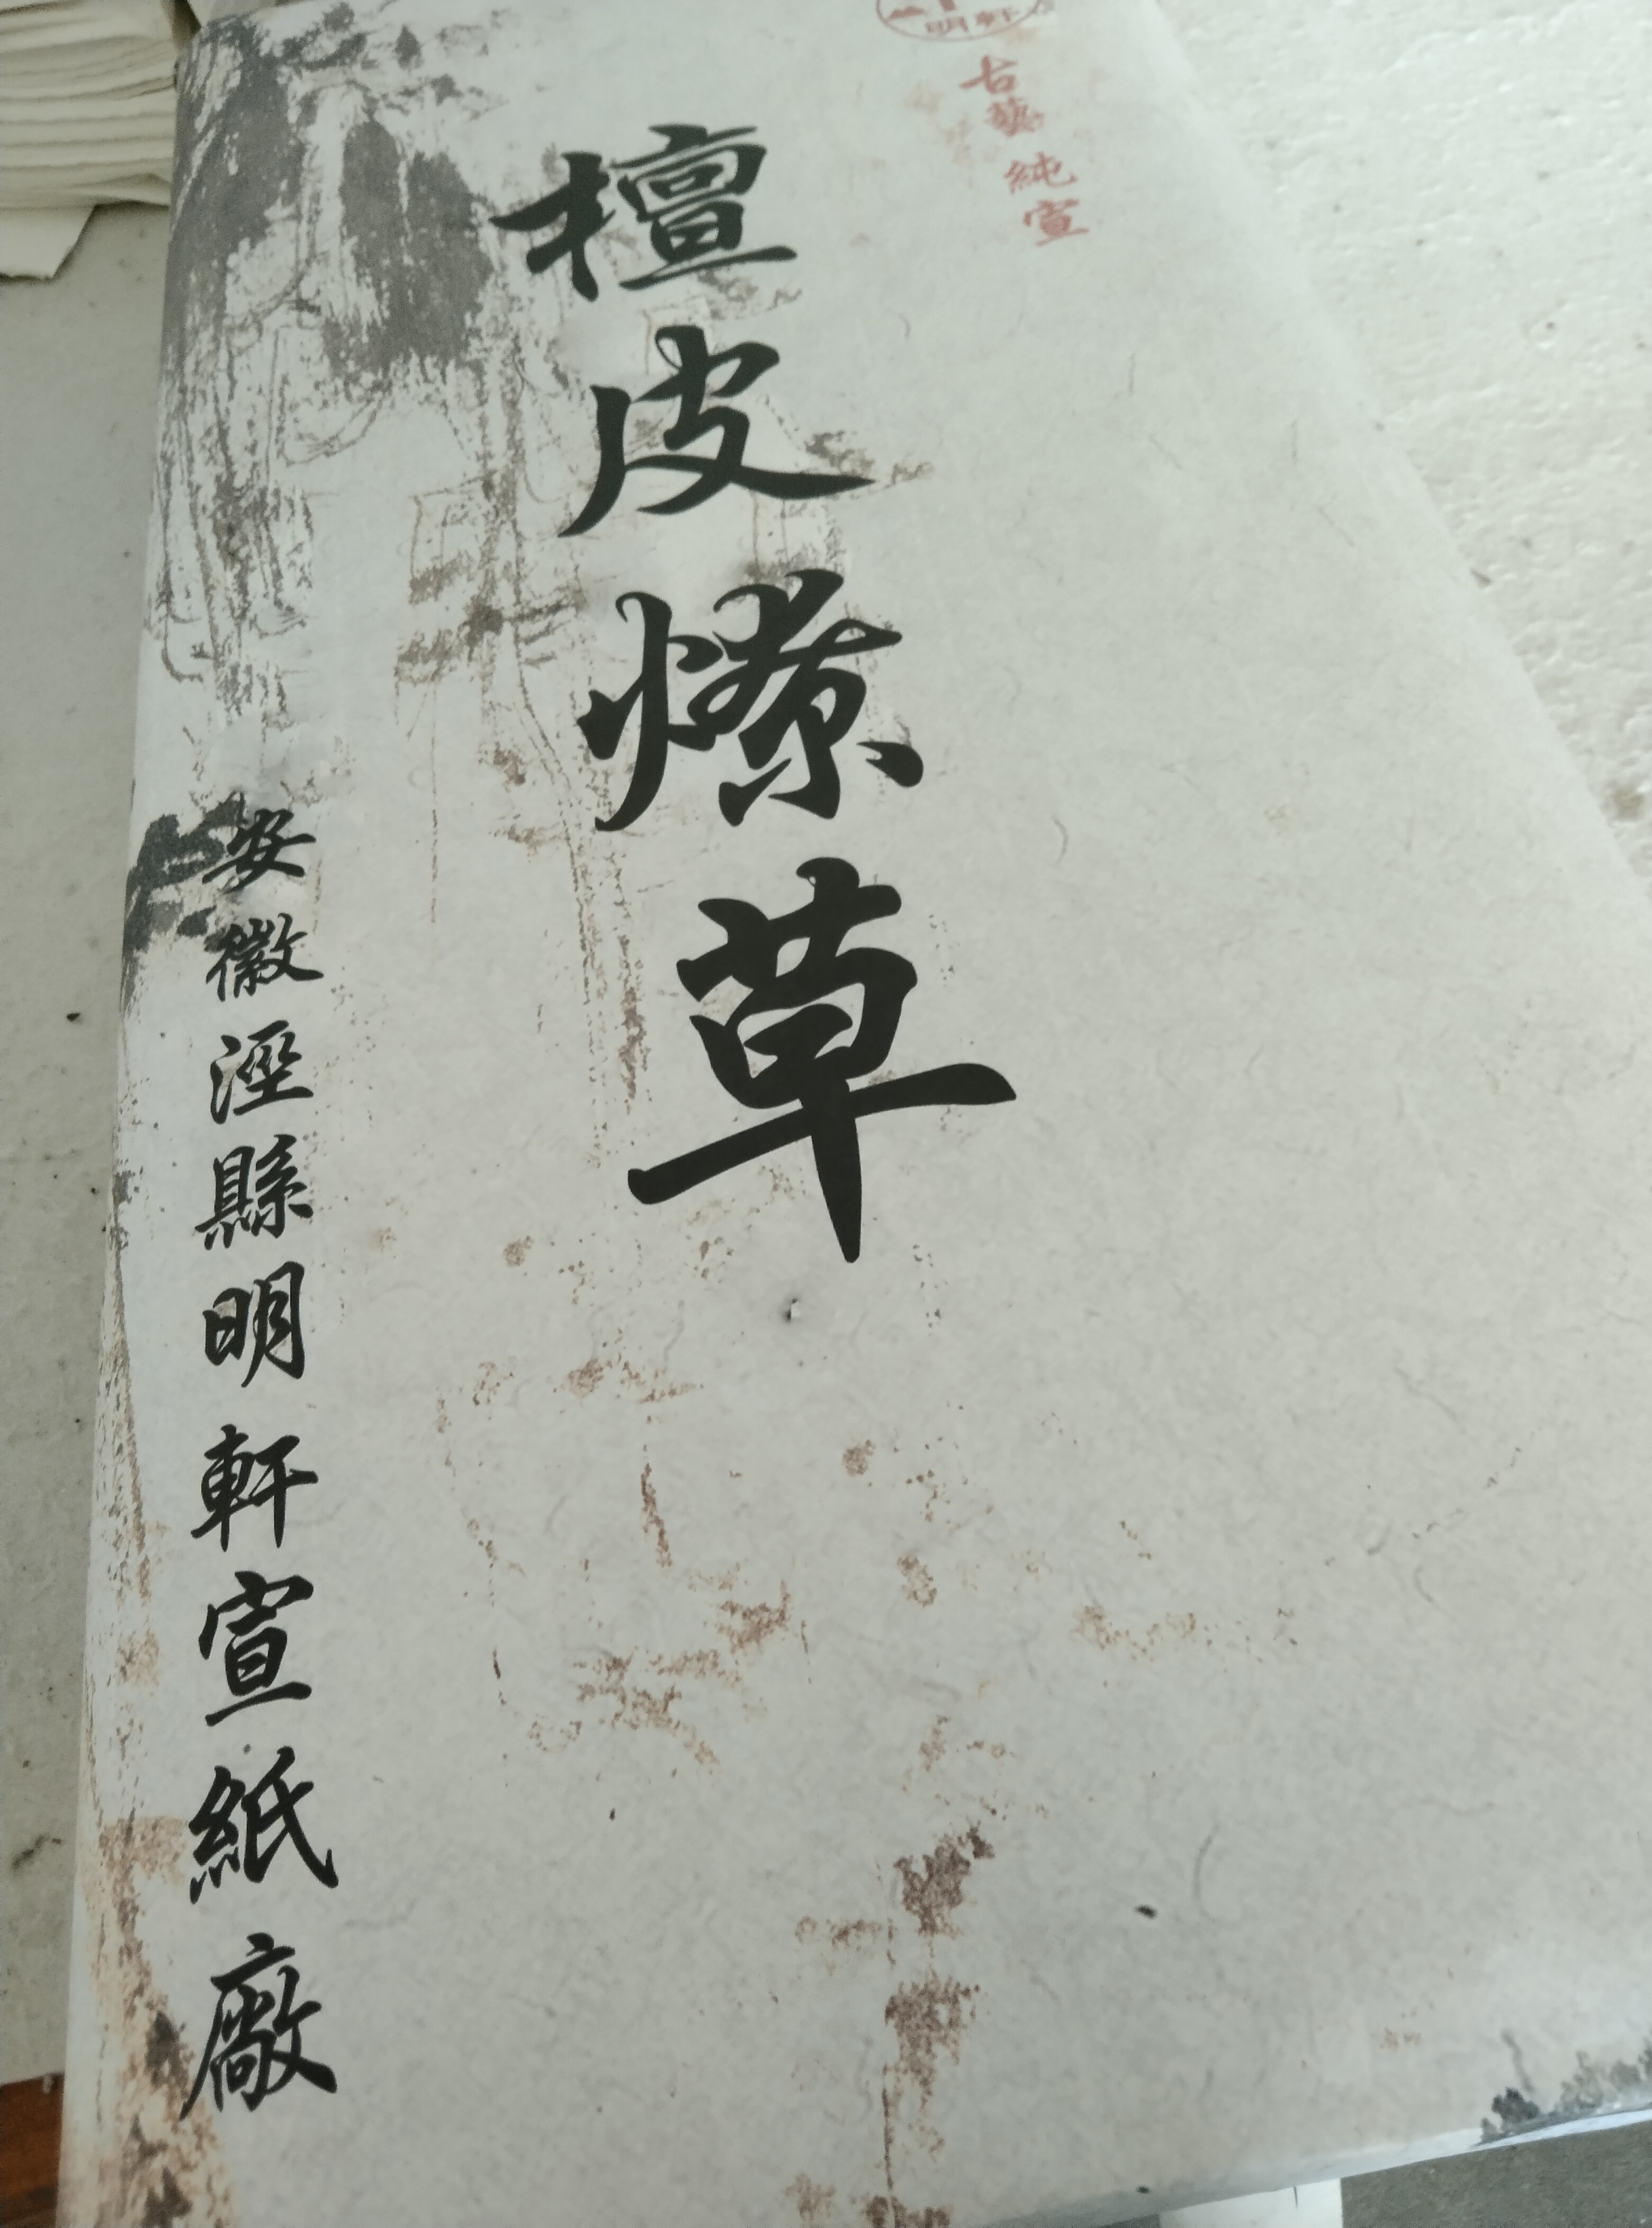 明軒
古藝 純宣
檀皮燎草
安徽涇縣明軒宣紙廠